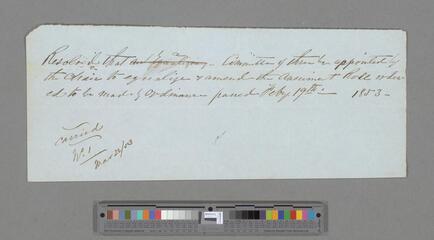 Resolved that a Committee of three be appointed by
the Chair to equalize & amend the Assessment Roll order-
ed to be made by Ordinance passed Feby 19th — 1853 —
Carried
No 1
Mar 26/53